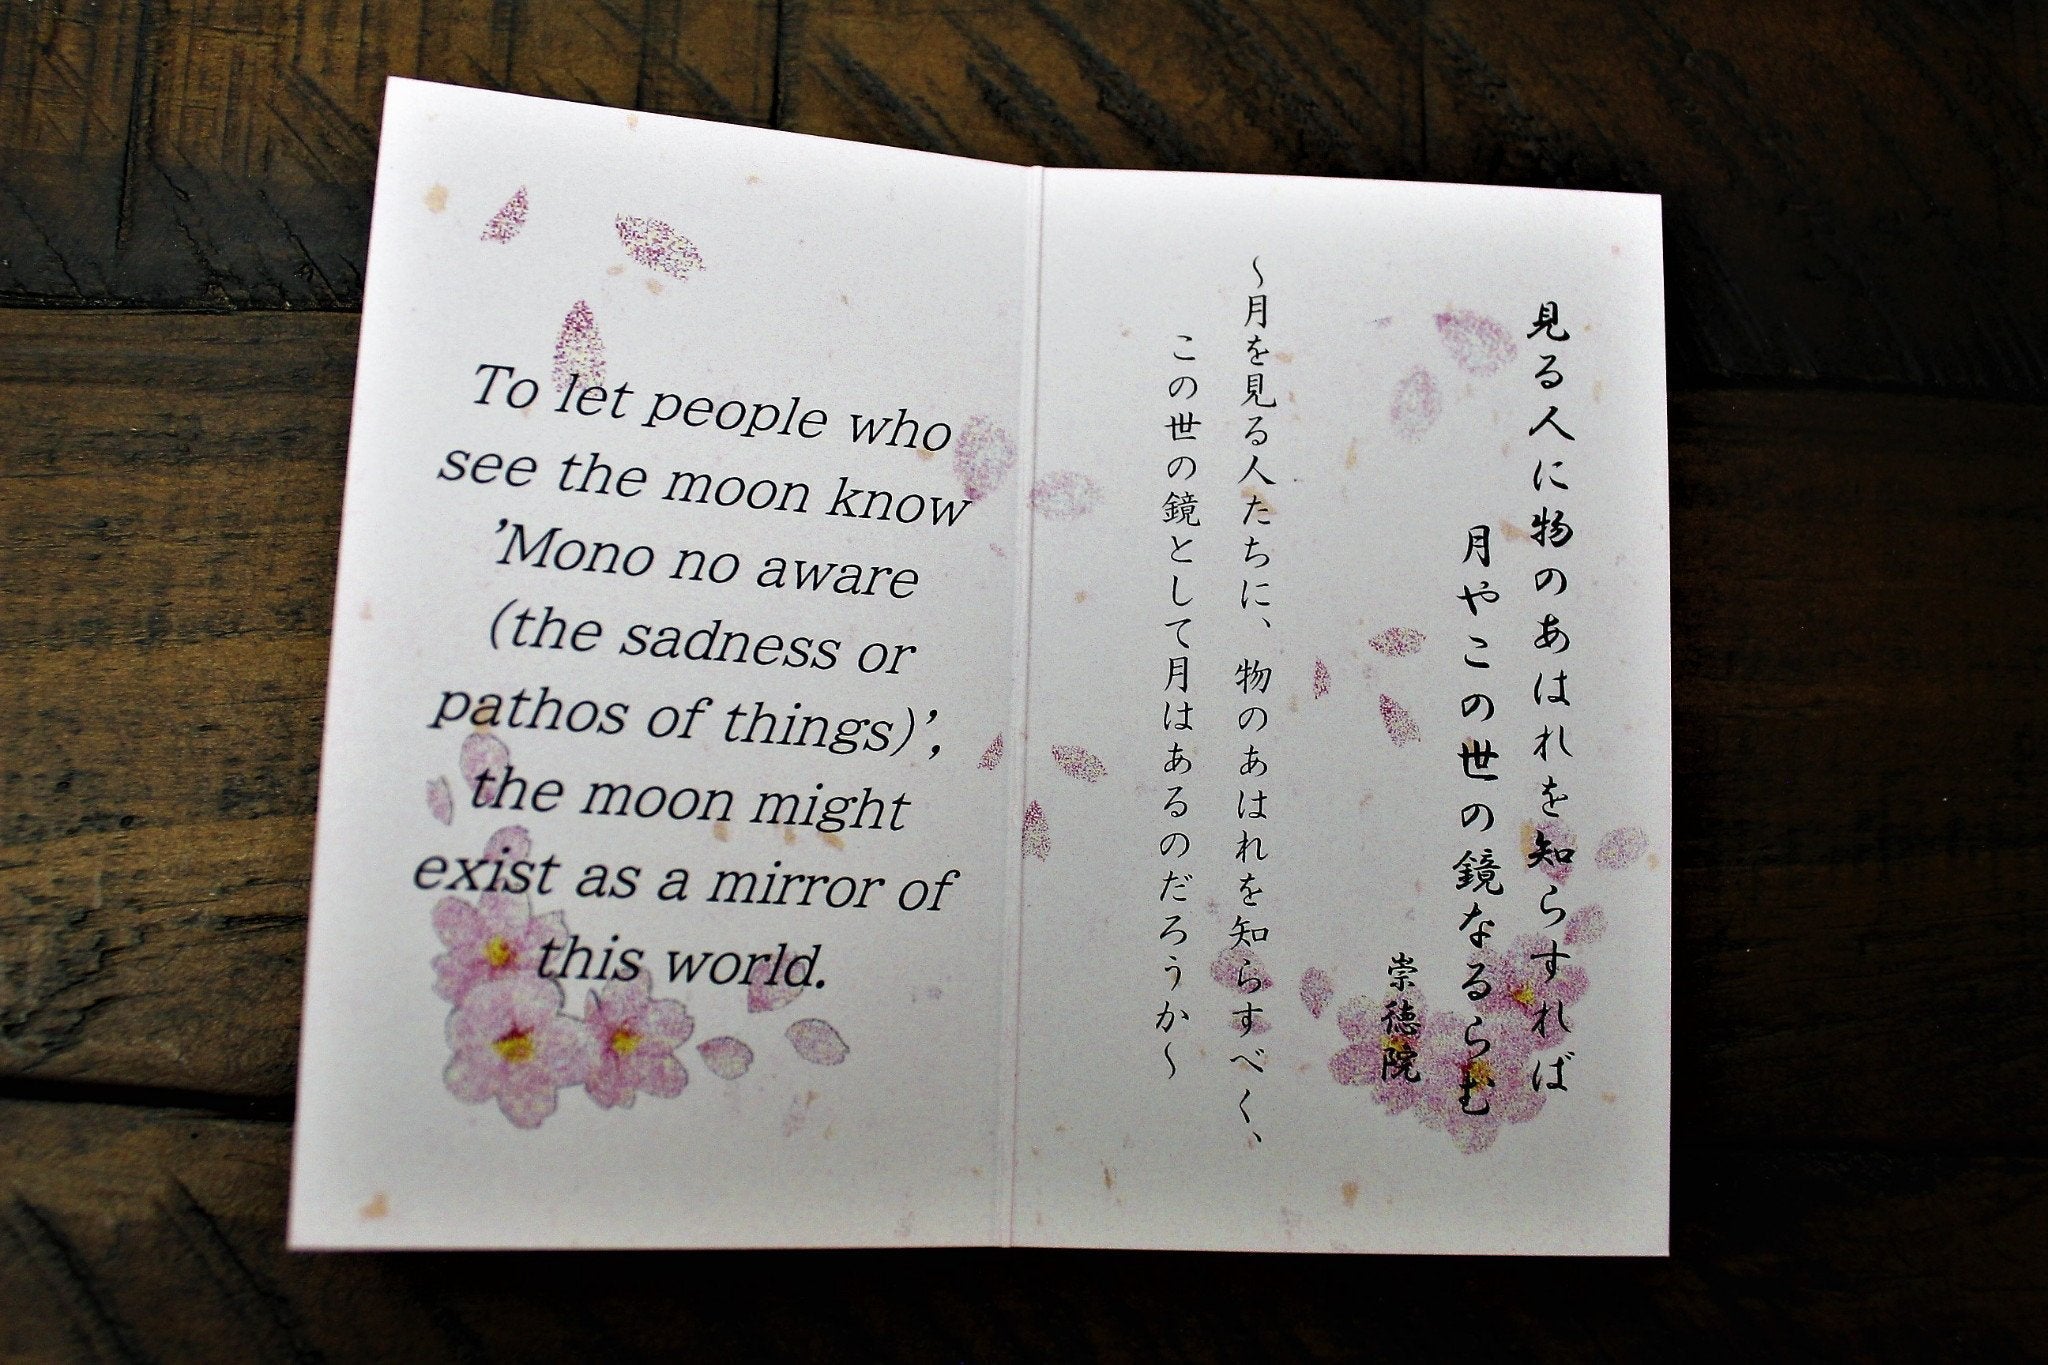 To let people who
see the moon know
'Mono no aware
(the sadness or
pathos of things)',
the moon might
exist as a mirror of
this world.
見る人に物のあはれを知らすれば
月やこの世の鏡なるらむ
崇徳院
～月を見る人たちに、物のあはれを知らすべく、
この世の鏡として月はあるのだろうか～